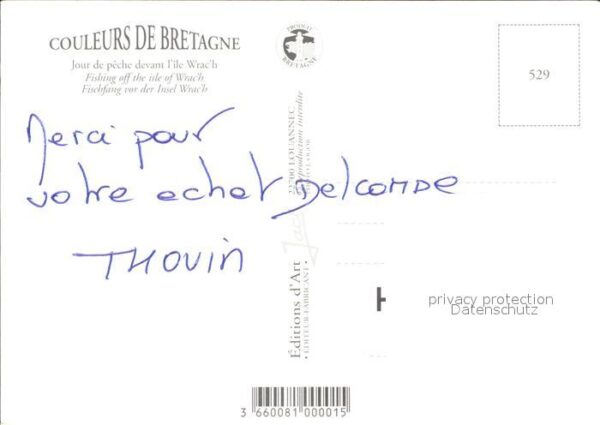 COULEURS DE BRETAGNE
Jour de pêche devant l'île Wrac'h
Fishing off the isle of Wrac'h
Fischfang vor der Insel Wrac'h
PRODUIT
BRETAGNE
529
Merci pour
votre achat Delcampe
THOUIN
Editions d'Art
• EDITEUR-FABRICANT •
22700 LOUANNEC
Reproduction interdite
privacy protection
Datenschutz
3 660081 000015